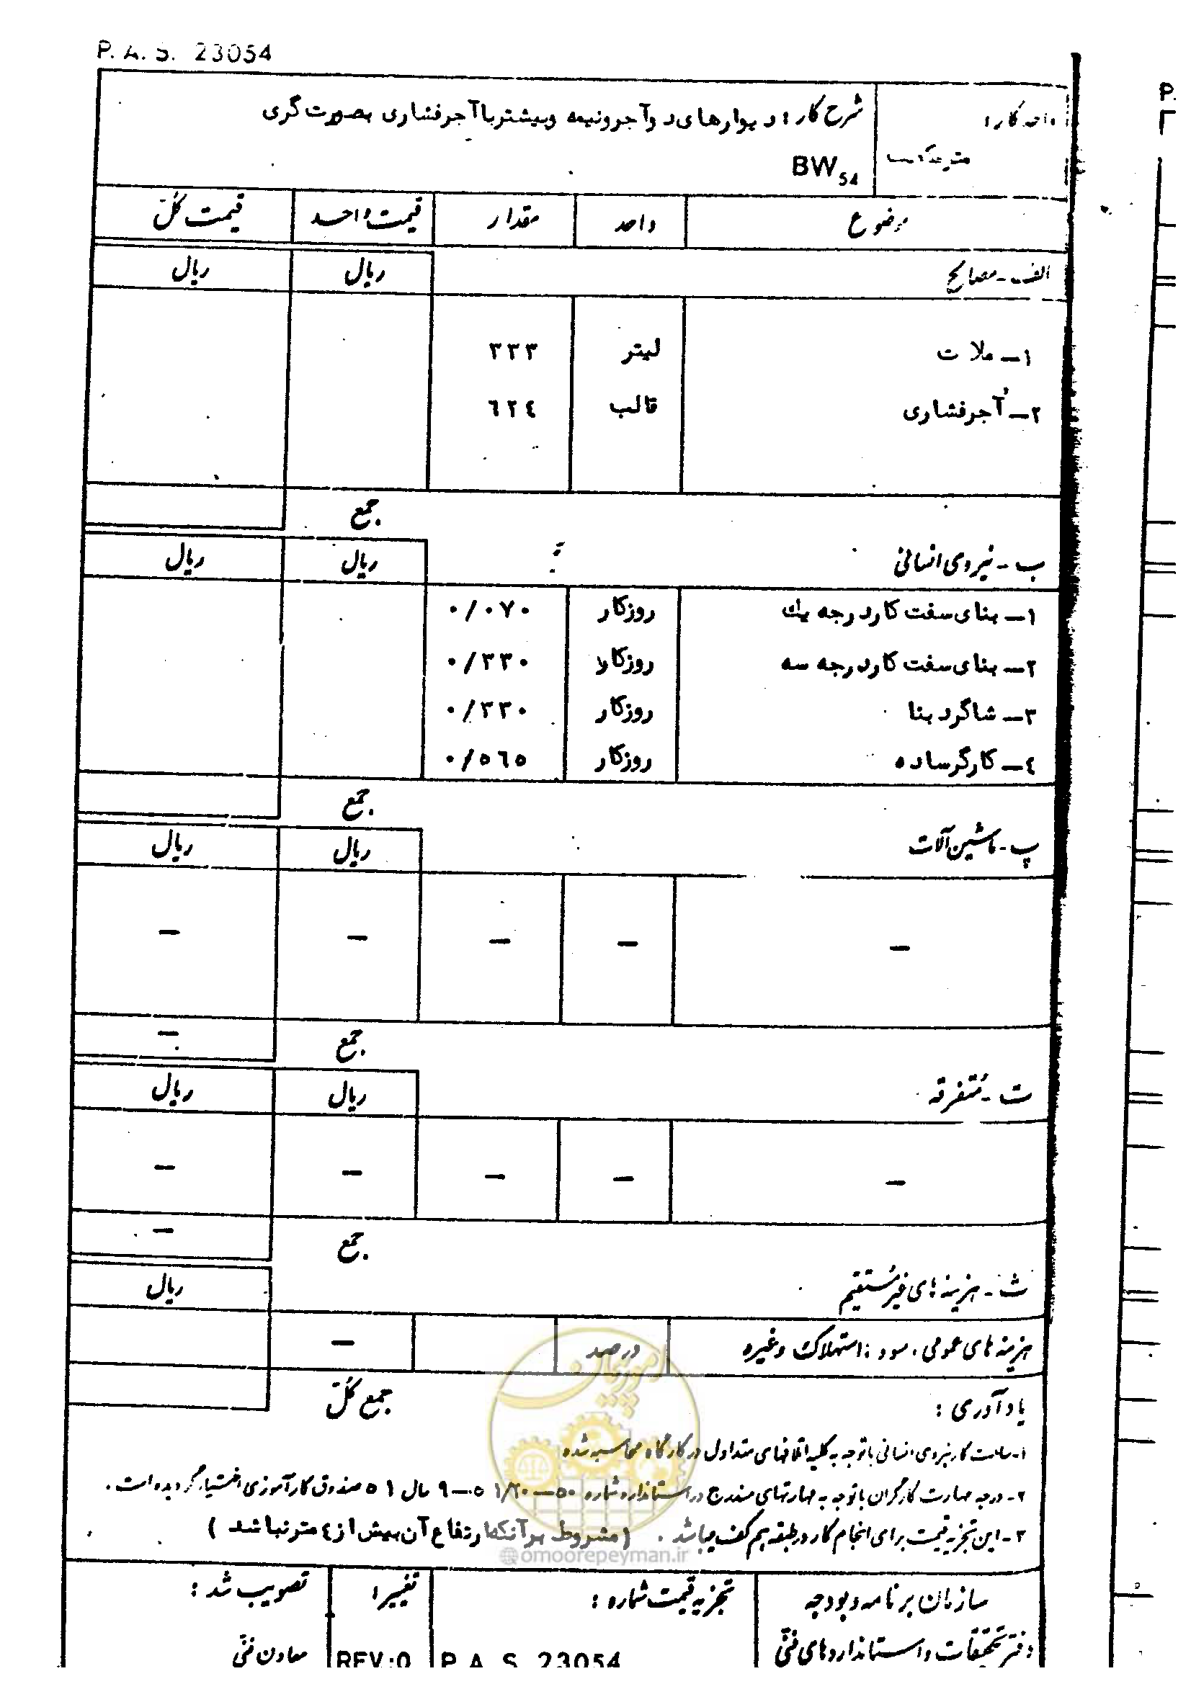 P. A. S. 23054
واحد کار :
شرح کار : دیوارهای دوآجرونیمه وبیشتر باآجرفشاری بصورت گری
مترمکعب
BW54
موضوع واحد مقدار قیمت واحد قیمت کلّ
الف - مصالح ریال ریال
۱ – ملات لیتر ۳۳۳
۲ – آجرفشاری قالب ٦٢٤
جمع
ب - نیروی انسانی ریال ریال
۱ – بنای سفت کار درجه یك روزکار ۰/۰۷۰
۲ – بنای سفت کار درجه سه روزکار ۰/۳۳۰
۳ – شاگرد بنا روزکار ۰/۳۳۰
٤ – کارگرساده روزکار ۰/٥٦٥
جمع
پ - ماشین آلات ریال ریال
– – – – –
جمع –
ت - مُتفرقه ریال ریال
– – – – –
جمع –
ث - هزینه های غیرمُستقیم ریال
هزینه های عمومی ، سود ، استهلاک وغیره درصد –
جمع کلّ
یادآوری :
۱- ساعت کار نیروی انسانی باتوجه به کلیه اتلافهای متداول در کارگاه محاسبه شده
۲- درجه مهارت کارگران باتوجه به مهارتهای مندرج در استاندارد شماره ۵۰–۱/۲۰ ۵۱–۹ سال ۵۱ صندوق کارآموزی اختیار گردیده است .
۳- این تجزیه قیمت برای انجام کار در طبقه هم کف میباشد . ( مشروط برآنکه ارتفاع آن بیش از ٤ متر نباشد )
امور پیمان
@omoorepeyman.ir
سازمان برنامه و بودجه تجزیه قیمت شماره : تغییر : تصویب شد :
دفتر تحقیقات و استانداردهای فنّی P. A. S. 23054 REV:0 معاون فنّی
P.